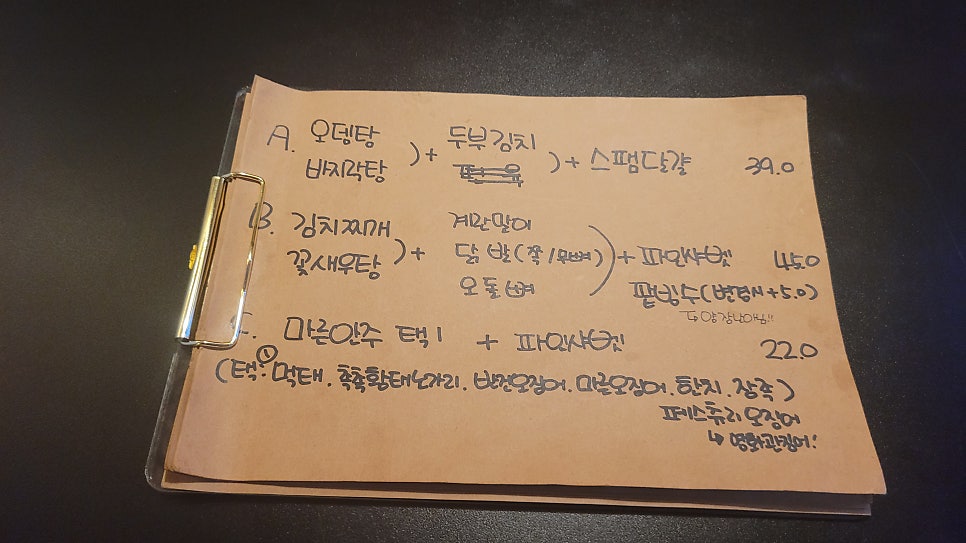 A. 오뎅탕 ) + 두부김치 ) + 스팸달걀 39.0
바지락탕
B. 김치찌개 계란말이
꽃새우탕 ) + 닭발(쪽/무뼈) ) + 파인샤벳 45.0
오돌뼈 팥빙수(변경시 +5.0)
C. 마른안주 택1 + 파인샤벳 22.0
(택① 먹태. 촉촉황태노가리. 반건오징어. 마른오징어. 한치. 장족)
페스츄리오징어
↳ 영화관징어!